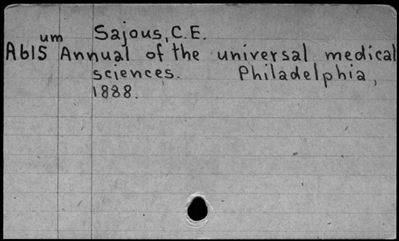 um Sajous, C.E.
Ab15 Annual of the universal medical
sciences. Philadelphia,
1888.